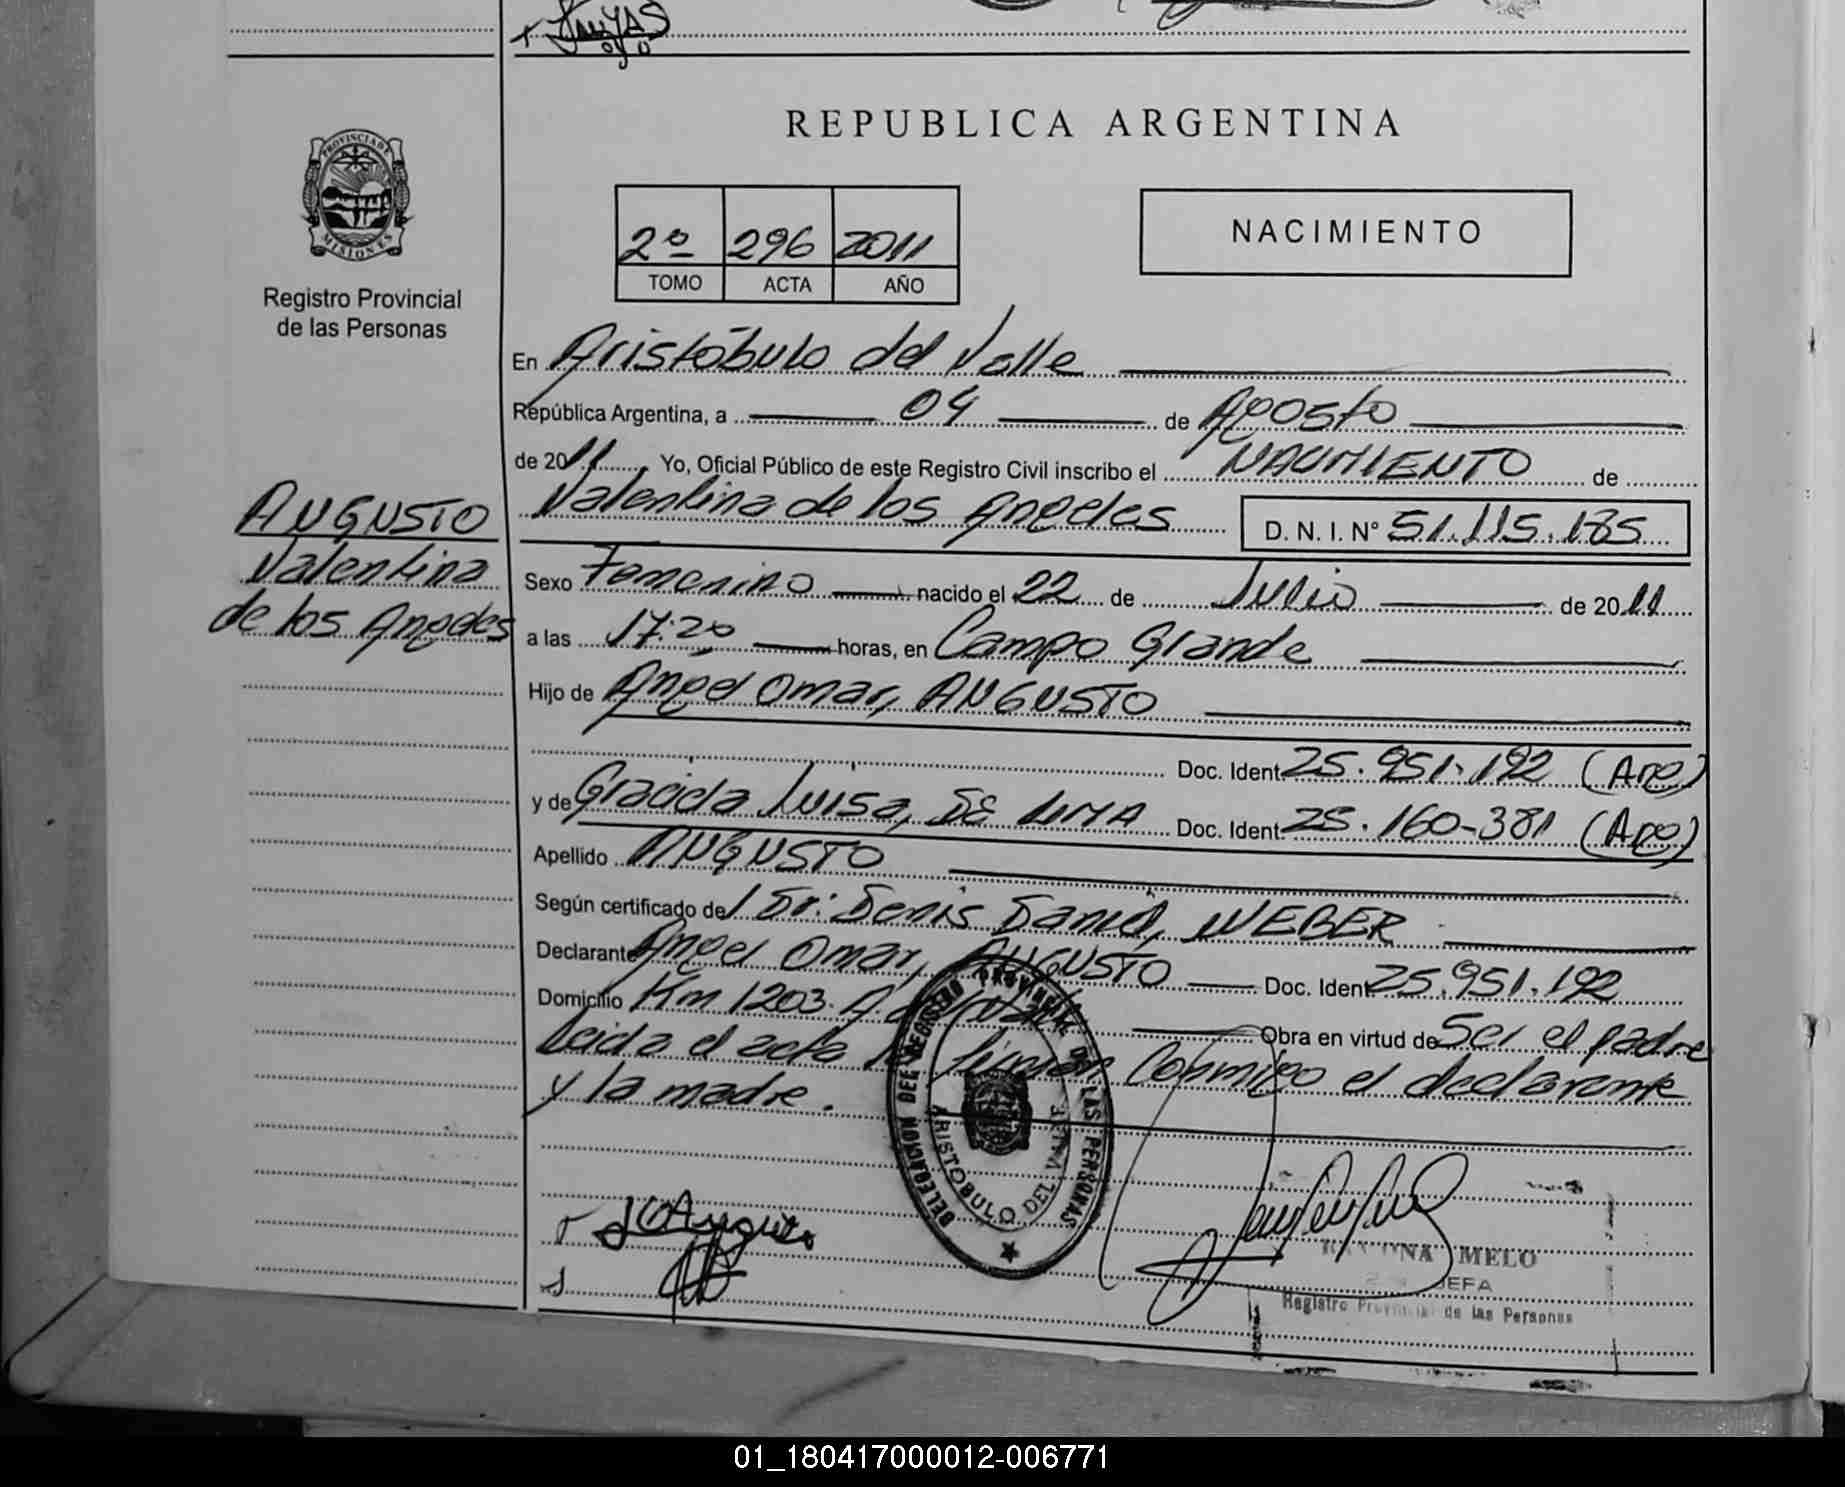 REPUBLICA ARGENTINA
PROVINCIA DE
MISIONES
Registro Provincial
de las Personas
2º 296 2011
TOMO ACTA AÑO
NACIMIENTO
En Aristóbulo del Valle
República Argentina, a 04 de Agosto
de 2011, Yo, Oficial Público de este Registro Civil inscribo el NACIMIENTO de
Valentina de los Angeles D. N. I. Nº 51.115.185
AUGUSTO
Valentina
de los Angeles
Sexo Femenino nacido el 22 de Julio de 2011
a las 17:20 horas, en Campo Grande
Hijo de Angel Omar, AUGUSTO
Doc. Ident 25.951.192 (Arg)
y de Graciela Luisa, DE LIMA Doc. Ident 25.160-381 (Arg)
Apellido AUGUSTO
Según certificado del Dr: Denis Daniel, WEBER
Declarante Angel Omar, AUGUSTO Doc. Ident 25.951.192
Domicilio Km 1203. A. del Valle Obra en virtud de Ser el padre
Leida el acta la firman Conmigo el declarante
y la madre.
DELEGACION DEL REGISTRO PROVINCIAL DE LAS PERSONAS
ARISTOBULO DEL VALLE
RAMONA MELO
JEFA
Registro Provincial de las Personas
01_180417000012-006771